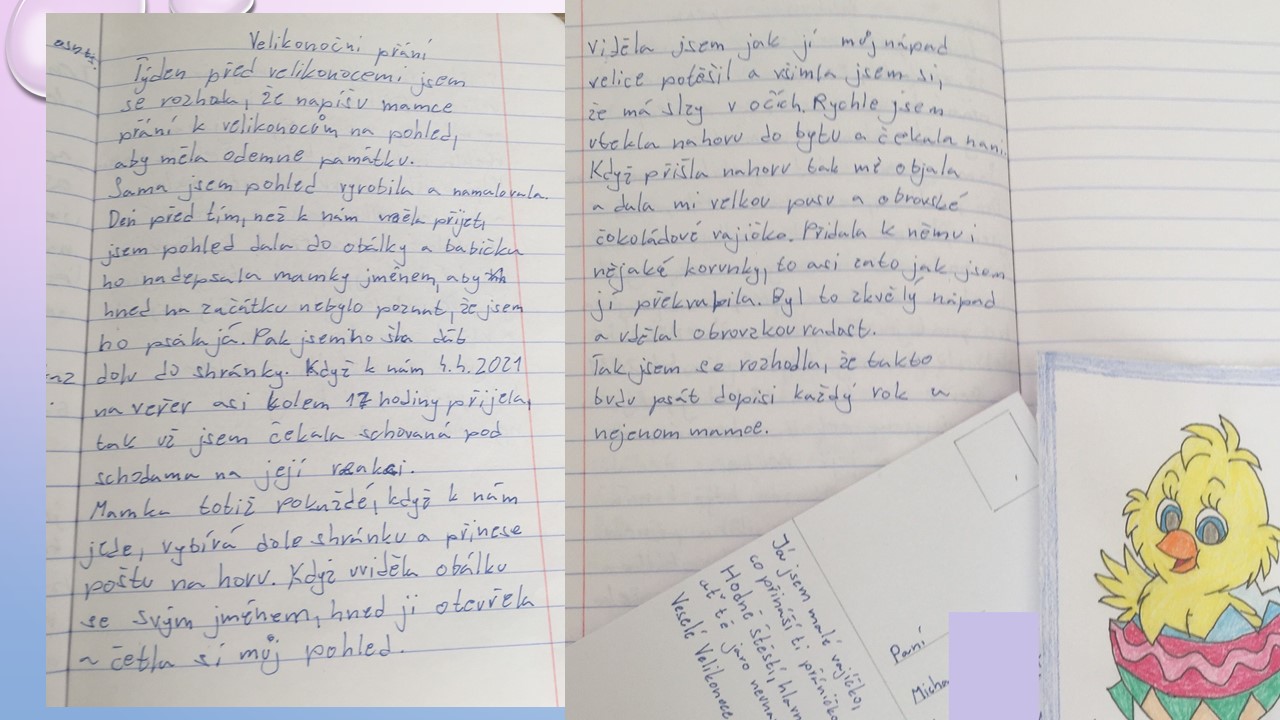 Velikonoční přání
Týden před velikonocemi jsem
se rozhodla, že napíšu mamce
přání k velikonocům na pohled,
aby měla odemne památku.
Sama jsem pohled vyrobila a namalovala.
Den před tím, než k nám měla přijet,
jsem pohled dala do obálky a babička
ho nadepsala mamky jménem, aby
hned na začátku nebylo poznat, že jsem
ho psala já. Pak jsem ho šla dát
dolu do shránky. Když k nám 4.4.2021
na večer asi kolem 17 hodiny přijela,
tak už jsem čekala schovaná pod
schodama na její reakci.
Mamka totiž pokaždé, když k nám
jede, vybírá dole shránku a přinese
poštu na horu. Když uviděla obálku
se svým jménem, hned ji otevřela
a četla si můj pohled.
Viděla jsem jak jí můj nápad
velice potěšil a všimla jsem si,
že má slzy v očích. Rychle jsem
utekla nahoru do bytu a čekala na ni.
Když přišla nahoru tak mě objala
a dala mi velkou pusu a obrovské
čokoládové vajíčko. Přidala k němu i
nějaké korunky, to asi zato jak jsem
ji překvapila. Byl to zkvělý nápad
a udělal obrovzkou radost.
Tak jsem se rozhodla, že takto
budu psát dopisi každý rok a
nejenom mamce.
Já jsem malé vajíčko,
co přináší ti přáníčko
Hodně štěstí, hlavn
ať tě jaro
Veselé Velikonoce
Paní
Micha